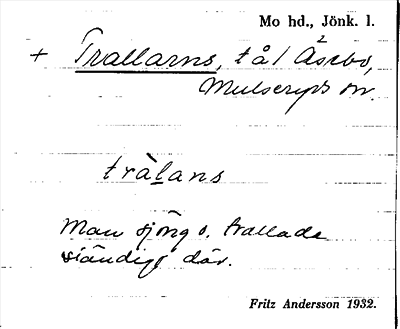 Mo hd., Jönk. l.
+ Trallarns, t å l Åsebo,
Mulseryds sn.
tràlans
Man sjöng o. trallade
ständigt där.
Fritz Andersson 1932.